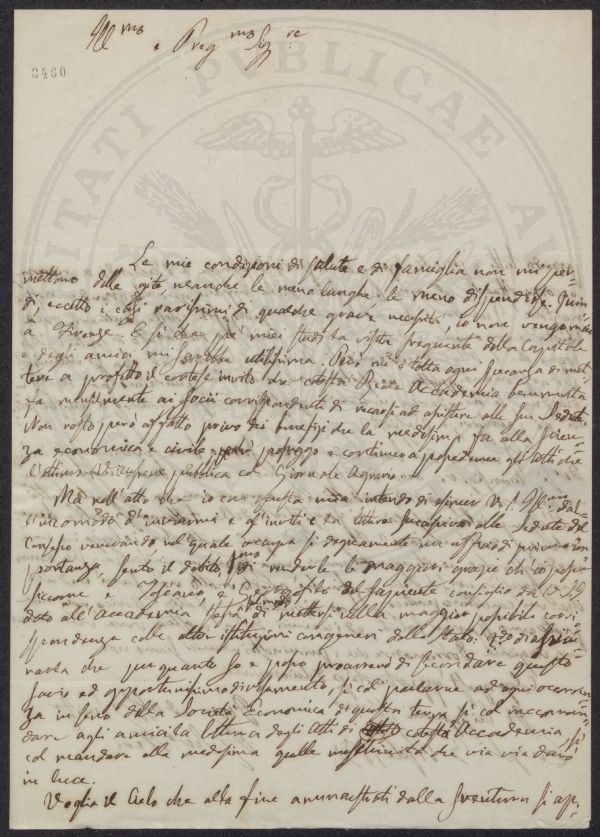 Ill.mo e Preg.mo Sig.re
3460
PUBLICAE
Le mie condizioni di salute e di famiglia non mi per-
mettono delle gite, neanche le meno lunghe le meno dispendiose. Quin-
di, eccetto i casi rarissimi di qualche grave necessità, io non vengo mai
a Firenze. E sì che pe' miei studi la visita frequente della Capitale
e degli amici mi sarebbe utilissima. Però mi è tolta ogni speranza di met-
tere a profitto il cortese invito che cotesta Accademia benemerita
fa annualmente ai socii corrispondenti di recarsi ad assistere alle sue Sedute
Non resto però affatto privo dei benefizi che la medesima fa alla Scien-
za economica e civile, perchè posseggo e continuo a possederne gli Atti che
l'ottima pubblica col Giornale Agrario.
Ma nell'atto che io con questa mia intendo di V. S. Ill.ma dal-
l'incomodo d'inviarmi e gl'inviti e le lettere alle Sedute del
Consesso venerando nel quale occupa sì degnamente un uffizio di prim'im-
portanza, sento il debito di renderle le maggiori grazie ch'io possa
siccome e Toscano, e Georgofilo del sapiente consiglio da V. S.
dato all'Accademia stessa di mettersi nella maggior possibile corri-
spondenza colle altre istituzioni congeneri dello Stato.
che per quanto so e posso procurerò di secondare questo
savio ed opportunissimo divisamento, sì col parlarne ad ogni occorren-
za in seno della Società Economica di questa terra sì col raccoman-
dare agli amici la lettura degli Atti di cotesta Accademia sì
col mandare alla medesima quelle meschinità che via via darò
in luce.
Voglia il Cielo che alla fine ammaestrati dalla sventura si ap-